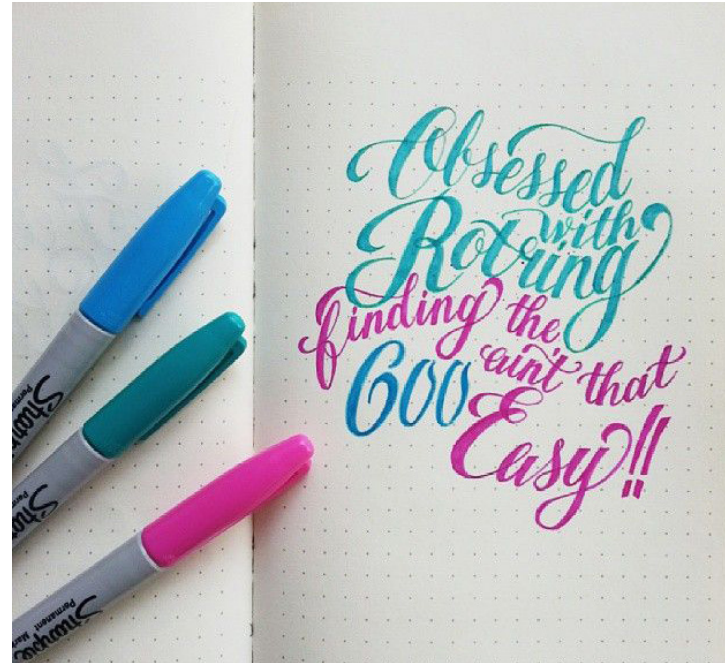 Obsessed
with
Rotring
finding the
600 ain't that
Easy!!
Sharpie
Permanent
Sharpie
Permanent
Sharpie
Permanent Mark